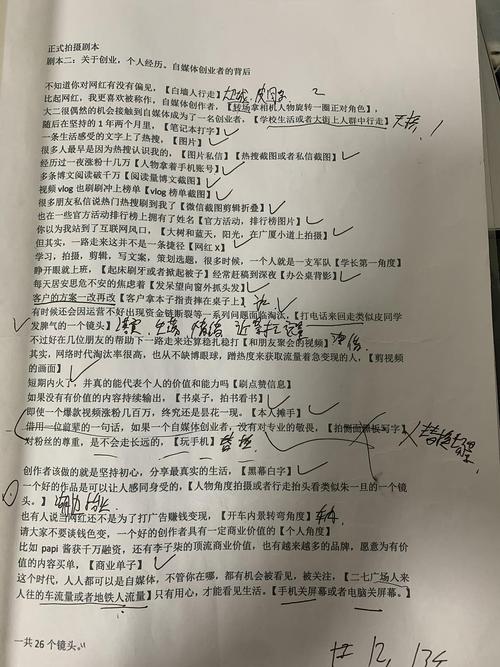 正式拍摄剧本
剧本二：关于创业，个人经历。自媒体创业者的背后
不知道你对网红有没有偏见，【白墙人行走】
比起网红，我更喜欢被称作，自媒体创作者，【转场拿相机人物旋转一圈正对角色】，
大二很偶然的机会接触到自媒体成为了一名创业者，【学校生活或者大街上人群中行走】
随后在坚持的1年两个月里，【笔记本打字】
一条生活感受的文字上了热搜，【图片】
很多人最早是因为热搜认识我的，【图片私信】【热搜截图或者私信截图】
经历过一夜涨粉十几万【人物拿着手机账号】
多条博文阅读破千万【阅读量博文截图】
视频 vlog 也刷刷冲上榜单【vlog 榜单截图】
很多朋友私信说热门热搜刷到我了【微信截图剪辑折叠】
也在一些官方活动排行榜上拥有了姓名【官方活动，排行榜图片】
你以为我站到了互联网风口，【大树和蓝天，阳光，在广厦小道上拍摄】
但其实，一路走来这并不是一条捷径【网红 X】
学习，拍摄，剪辑，写文案，策划选题，很多时候，一个人就是一支军队【学长第一角度】
睁开眼就上班，【起床刷牙或者掀起被子】经常赶稿到深夜【办公桌背影】
每天居安思危不安的焦虑着【发呆望向窗外抓头发】
客户的方案一改再改【客户拿本子指责摔在桌子上】
有时候还会因运营不好出现资金链断裂等一系列问题面临淘汰，【打电话来回走类似皮同学
发脾气的一个镜头】
不过好在几位朋友的帮助下一路走来还算稳扎稳打【和朋友聚会的视频】
其实，网络时代淘汰率很高，也从不缺博眼球，蹭热度来获取流量着急变现的人，【剪视频
的画面】
短期内火了，并真的能代表个人的价值和能力吗【刷点赞信息】
如果没有有价值的内容持续输出，【书桌子，拍书看书】
即使一个爆款视频涨粉几百万，终究还是昙花一现。【本人摊手】
借用一位前辈的一句话，如果一个自媒体创业者，没有对专业的敬畏，【拍侧面黑板写字】
对粉丝的尊重，是不会走长远的，【玩手机】
创作者该做的就是坚持初心，分享最真实的生活，【黑幕白字】
一个好的作品是可以让人感同身受的，【人物角度拍摄或者行走抬头看类似朱一旦的一个镜
头。】
也有人说当网红还不是为了打广告赚钱变现，【开车内景转弯角度】
请大家不要谈钱色变，一个好的创作者具有一定商业价值的【个人角度】
比如 papi 酱获千万融资，还有李子柒的顶流商业价值，也有越来越多的品牌，愿意为有价
值的内容买单，【商业单子】
这个时代，人人都可以是自媒体，不管你在哪，都有机会被看见，被关注，【二七广场人来
人往的车流量或者地铁人流量】只有用心，才能看见生活。【手机关屏幕或者电脑关屏幕。】
一共 26 个镜头。